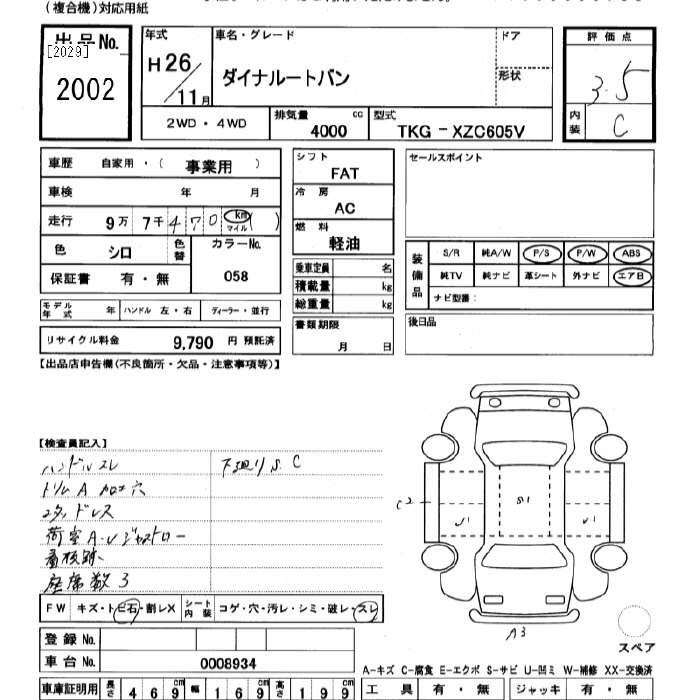 (複合機)対応用紙
出品No.
[2029]
2002
年式
H26/11月
車名・グレード
ダイナルートバン
ドア
形状
評価点
3.5
内装
C
2WD・4WD
排気量 cc
4000
型式
TKG-XZC605V
車歴 自家用・( 事業用 )
車検 年 月
走行 9万 7千470 km マイル ( )
色 シロ 色替 カラーNo.
保証書 有・無 058
モデル年式 年 ハンドル 左・右 ディーラー・並行
リサイクル料金 9,790 円 預託済
シフト
FAT
冷房
AC
燃料
軽油
乗車定員 名
積載量 kg
総重量 kg
書類期限
月 日
セールスポイント
装備品
S/R 純A/W P/S P/W ABS
純TV 純ナビ 革シート 外ナビ エアB
ナビ型番:
後日品
【出品店申告欄(不良箇所・欠品・注意事項等)】
【検査員記入】
ハンドルスレ 下廻りS.C
トリムA 加工穴
スタッドレス
荷室A・U
看板跡
座席数3
FW キズ・ト ビ石・割レX シート内装 コゲ・穴・汚レ・シミ・破レ・スレ
登録No.
車台No. 0008934
車庫証明用 長さ 469cm 幅 169cm 高さ 199cm
C2
U1
S1
U1
A3
スペア
A-キズ C-腐食 E-エクボ S-サビ U-凹ミ W-補修 XX-交換済
工具 有・無 ジャッキ 有・無